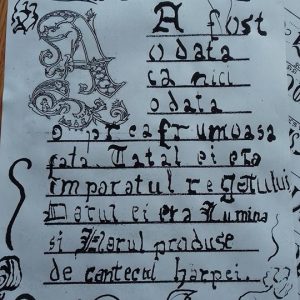 A A fost
o data
ca nici
o data
o prea frumoasa
fata. Tatal ei era
imparatul regatului
Darul ei era Lumina
si Harul produse
de cantecul harpei.